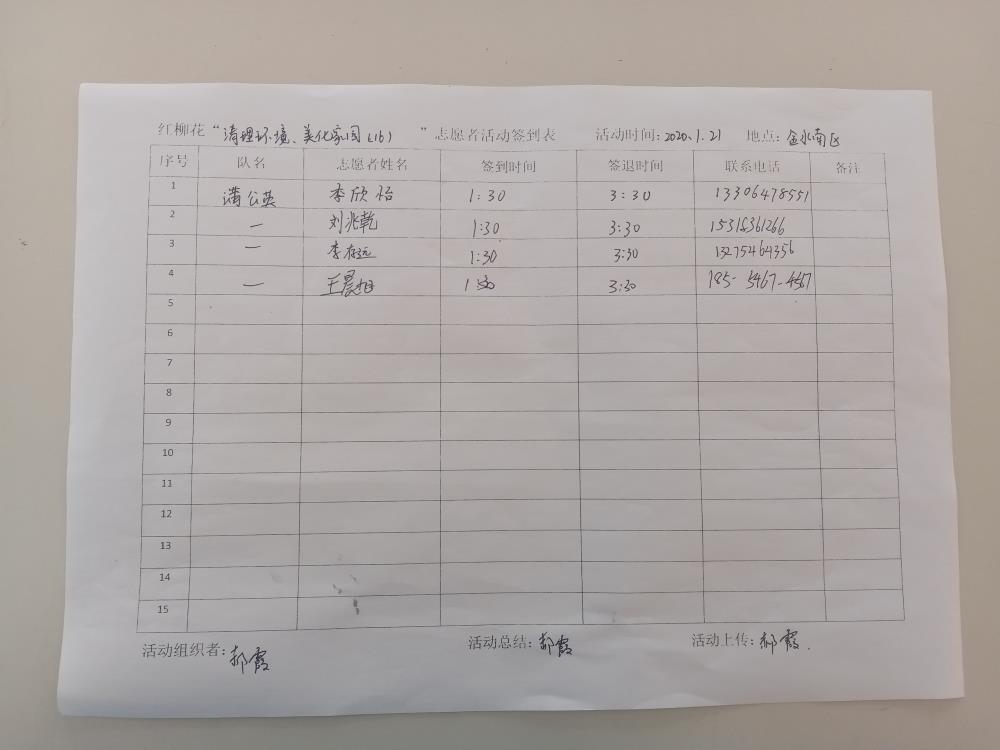 红柳花“清理环境、美化家园(16) ”志愿者活动签到表 活动时间:2020.1.21 地点:金水南区
序号 队名 志愿者姓名 签到时间 签退时间 联系电话 备注
1 蒲公英 李欣怡 1:30 3:30 13306478551
2 一 刘兆乾 1:30 3:30 15318361266
3 一 李存远 1:30 3:30 13275464356
4 一 王晨旭 1:30 3:30 185-5467-4567
5
6
7
8
9
10
11
12
13
14
15
活动组织者:郝霞 活动总结:郝霞 活动上传:郝霞.